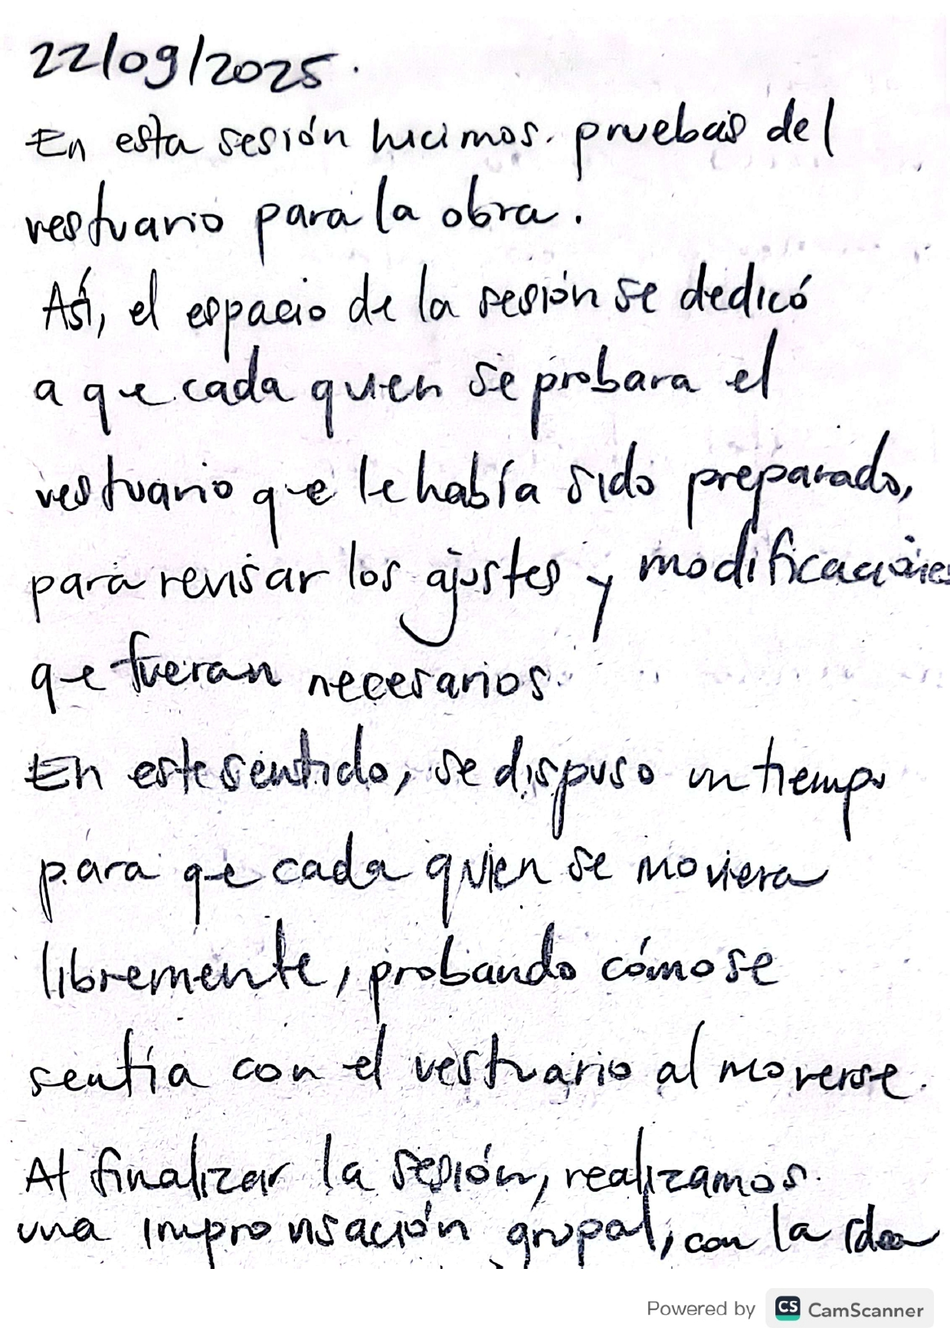 22/09/2025.
En esta sesión hicimos pruebas del
vestuario para la obra.
Así, el espacio de la sesión se dedicó
a que cada quien se probara el
vestuario que le había sido preparado,
para revisar los ajustes y modificaciones
que fueran necesarios.
En este sentido, se dispuso un tiempo
para que cada quien se moviera
libremente, probando cómo se
sentía con el vestuario al moverse.
Al finalizar la sesión, realizamos
una improvisación grupal, con la idea
Powered by CS CamScanner